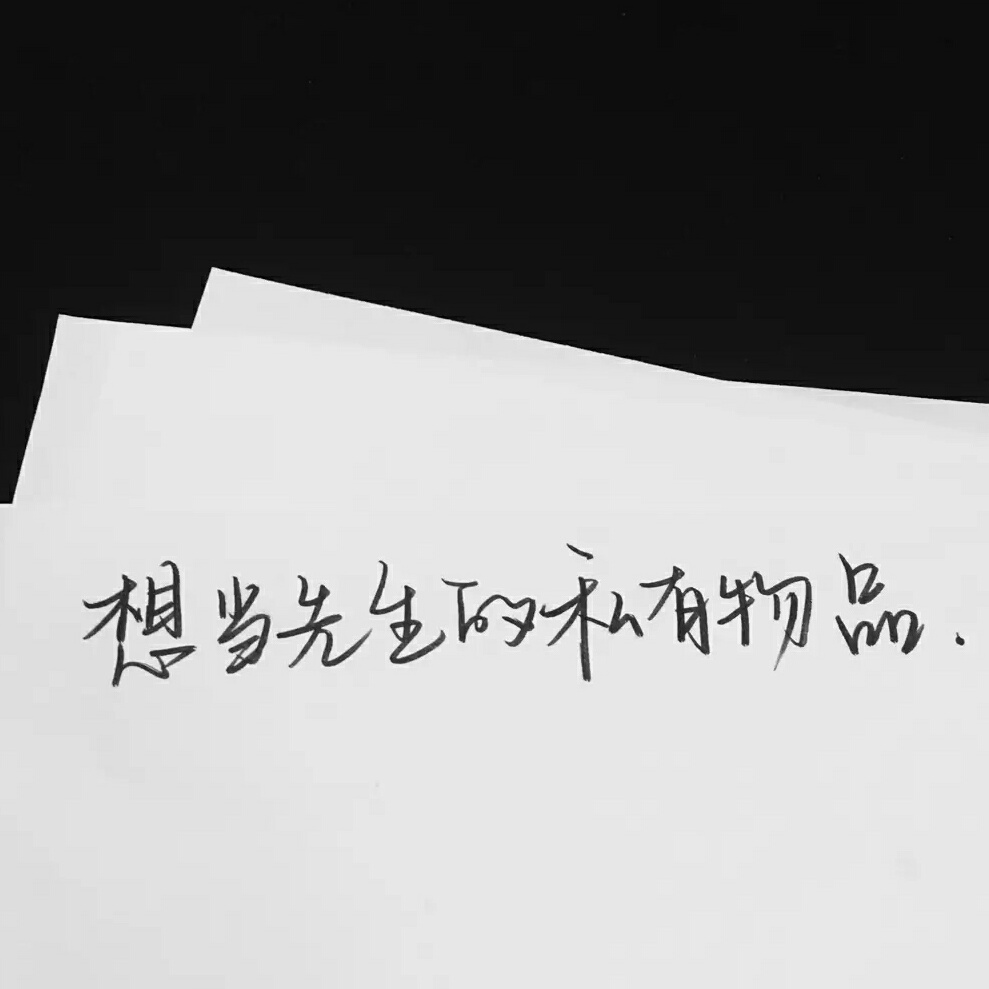 想当先生的私有物品.